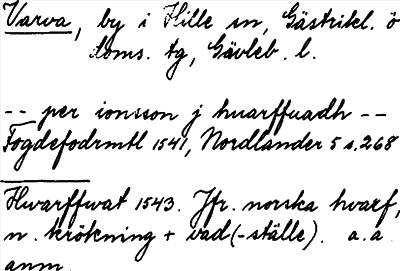 Varva, by i Hille sn, Gästrikl. ö
doms. tg, Gävleb. l.
-- per ionsson j huarffuadh --
Fogdefodrmtl 1541, Nordlander 5 s. 268
Hwarffwat 1543. Jfr. norska hvarf,
n. krökning + vad (-ställe). a.a
anm.